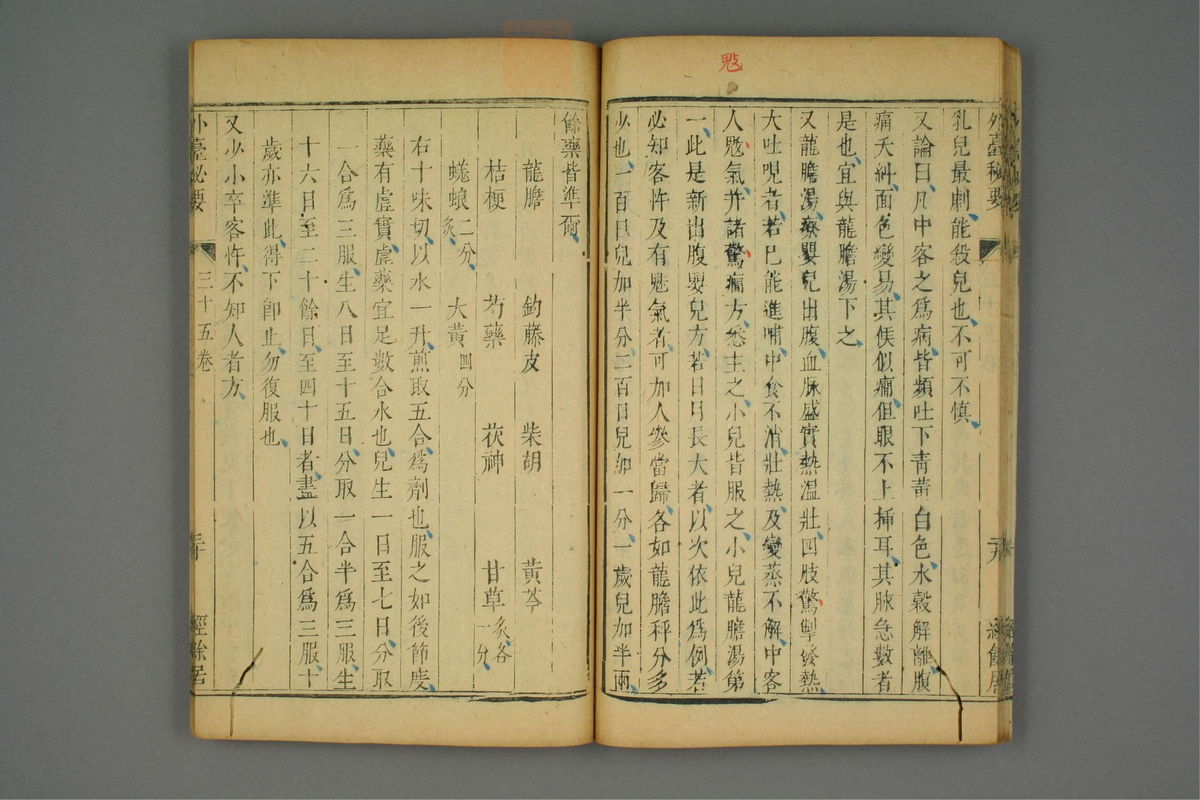 鬾
外臺秘要
乳兒最劇能殺兒也不可不慎
又論曰凡中客之爲病皆頻吐下青黃白色水穀解離腹
痛夭糾面色變易其候似癎但眼不上插耳其脉急數者
是也宜與龍膽湯下之
又龍膽湯療嬰兒出腹血脉盛實熱溫壯四肢驚掣發熱
大吐哯者若已能進哺中食不消壯熱及變蒸不解中客
人鬾氣并諸驚癎方悉主之小兒皆服之小兒龍膽湯第
一此是新出腹嬰兒方若日月長大者以次依此爲例若
必知客忤及有鬽氣者可加人參當歸各如龍膽秤分多
少也一百日兒加半分二百日兒加一分一歲兒加半兩
餘藥皆準爾
龍膽 鈎藤皮 柴胡 黃芩
桔梗 芍藥 茯神 甘草炙各一分
蜣蜋二分炙 大黃四分
右十味切以水一升煎取五合爲劑也服之如後節度
藥有虛實虛藥宜足數合水也兒生一日至七日分取
一合爲三服生八日至十五日分取一合半爲三服生
十六日至二十餘日至四十日者盡以五合爲三服十
歲亦準此得下卽止勿復服也
又少小卒客忤不知人者方
外臺秘要 三十五卷 三十 經餘居